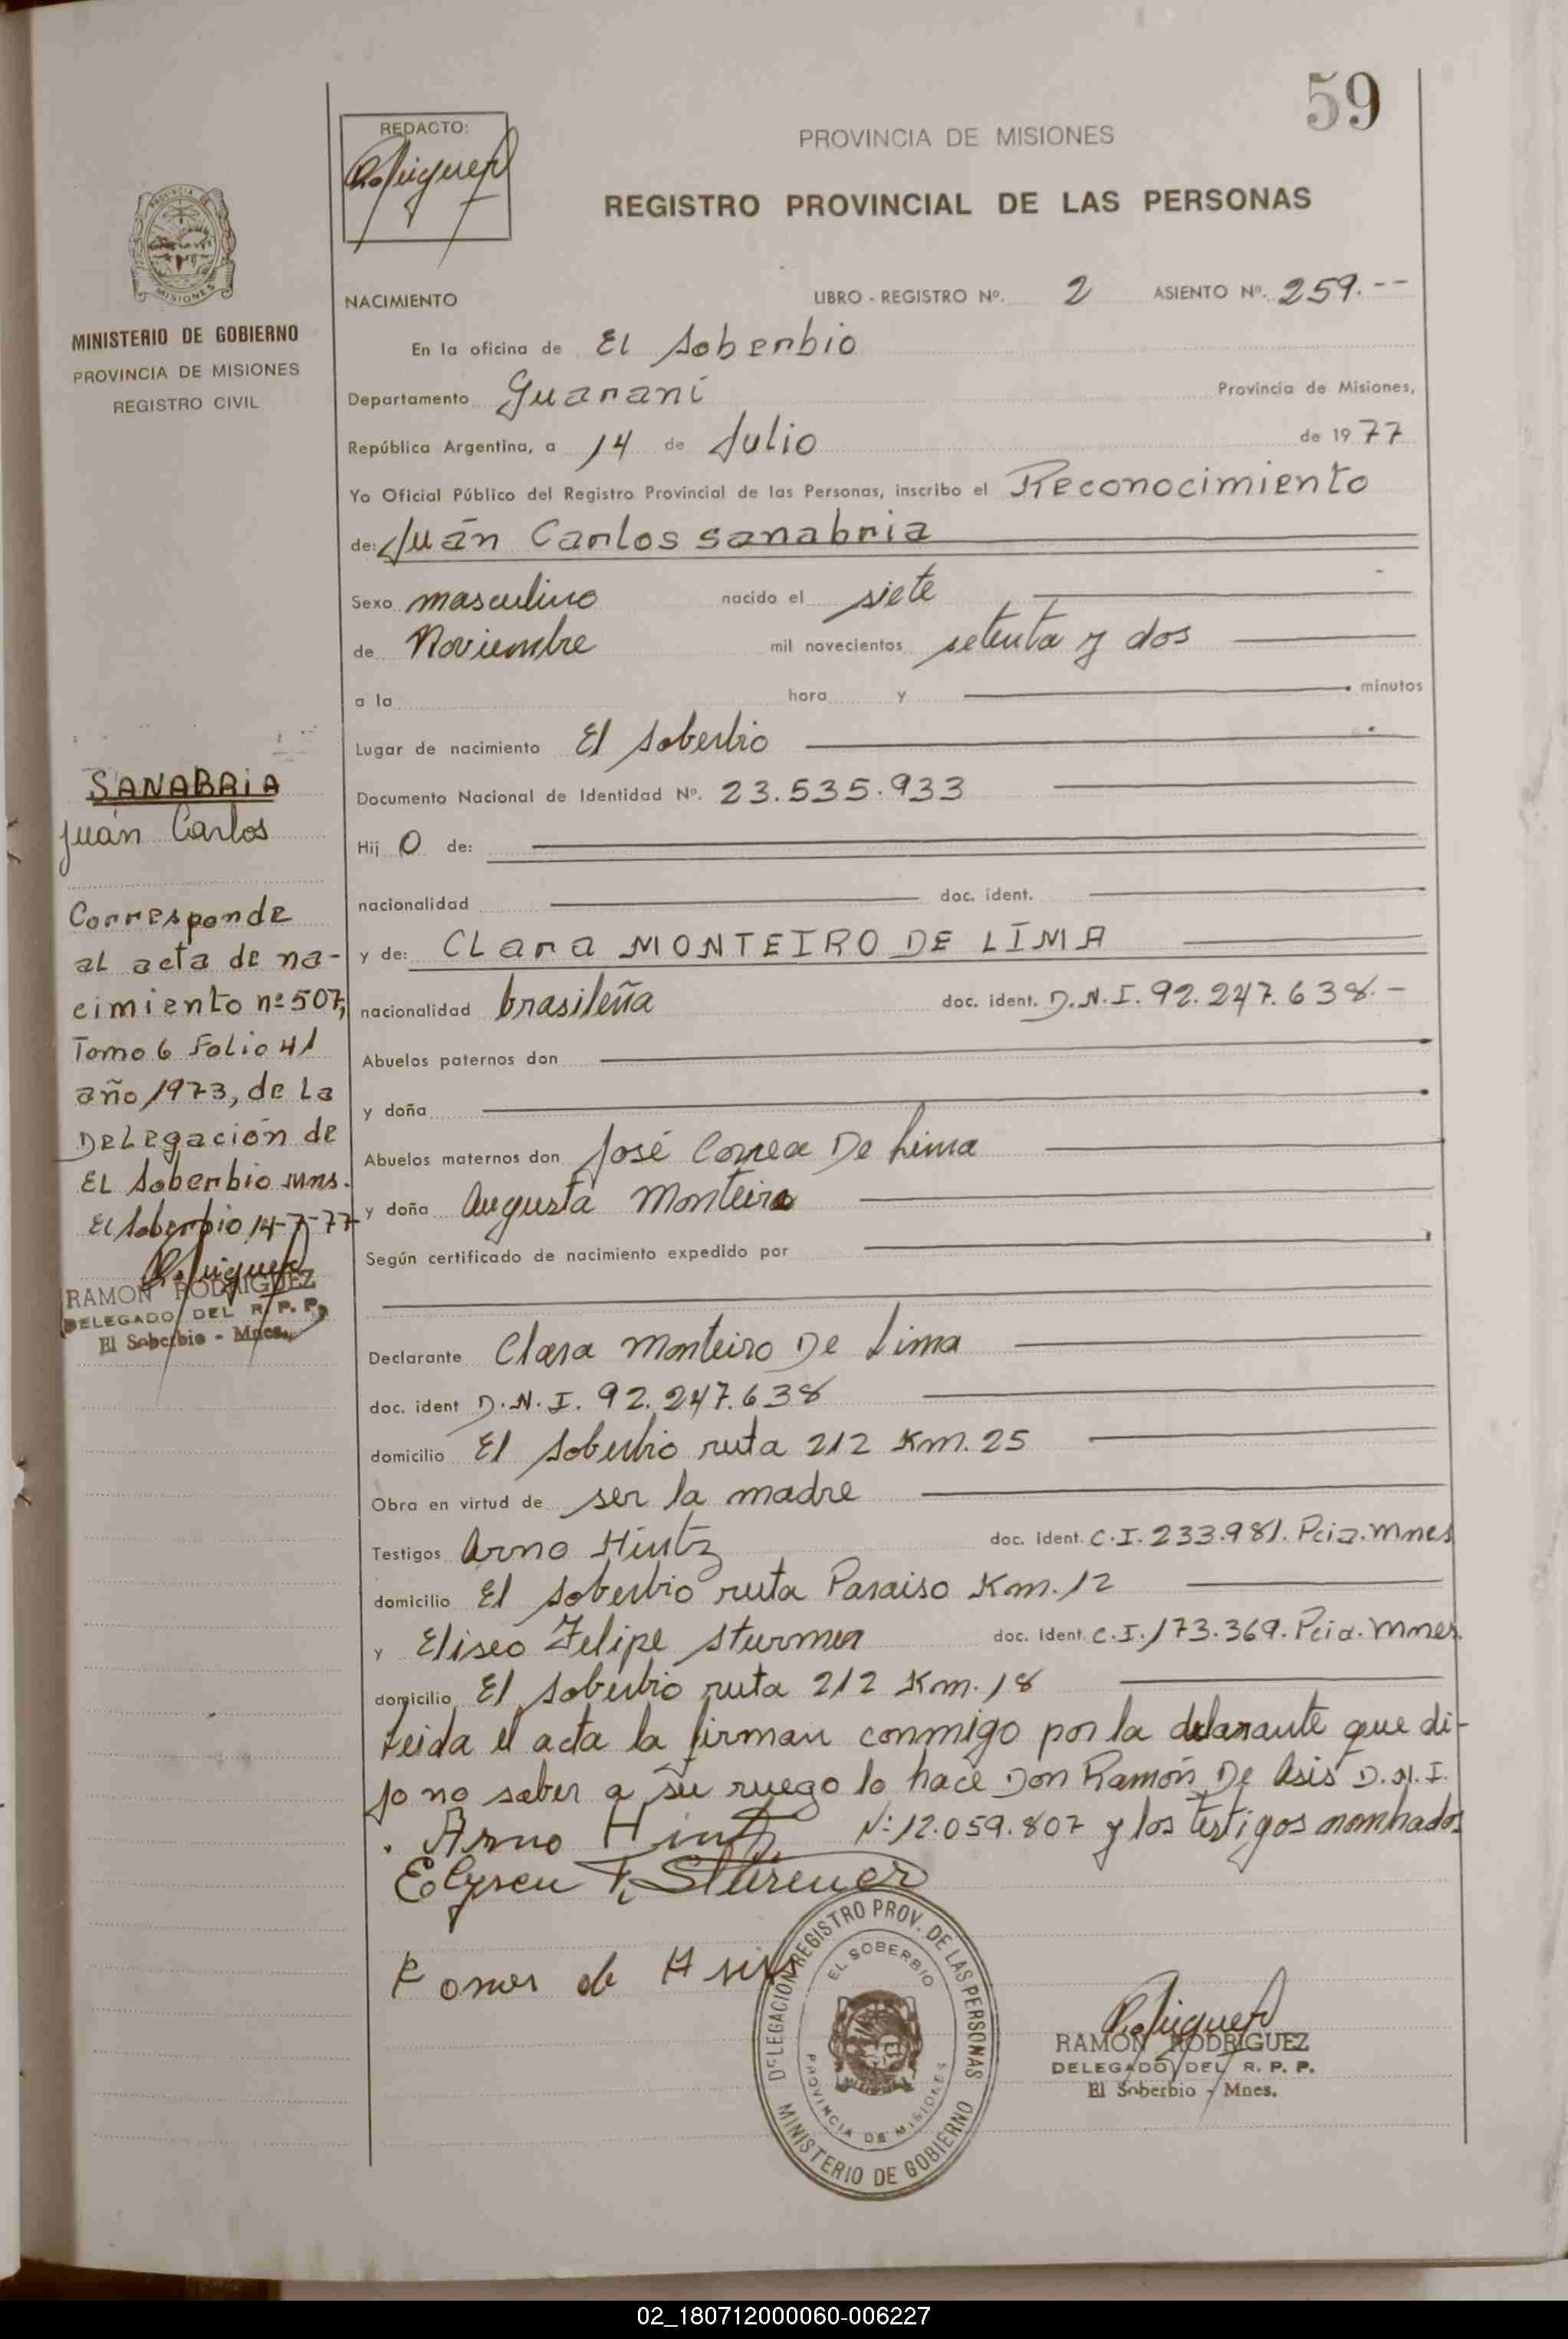 59
REDACTO:
PROVINCIA DE MISIONES
REGISTRO PROVINCIAL DE LAS PERSONAS
PROVINCIA DE
MISIONES
MINISTERIO DE GOBIERNO
PROVINCIA DE MISIONES
REGISTRO CIVIL
NACIMIENTO LIBRO - REGISTRO Nº. 2 ASIENTO Nº. 259.--
En la oficina de El Soberbio
Departamento Guaraní Provincia de Misiones,
República Argentina, a 14 de Julio de 1977
Yo Oficial Público del Registro Provincial de las Personas, inscribo el Reconocimiento
de: Juán Carlos Sanabria
Sexo masculino nacido el siete
de Noviembre mil novecientos setenta y dos
a la hora y minutos
Lugar de nacimiento El Soberbio
Documento Nacional de Identidad Nº. 23.535.933
Hij o de:
nacionalidad doc. ident.
y de: Clara MONTEIRO DE LIMA
nacionalidad brasileña doc. ident. D.N.I. 92.247.638.-
Abuelos paternos don
y doña
Abuelos maternos don José Correa De Lima
y doña Augusta Monteiro
Según certificado de nacimiento expedido por
Declarante Clara Monteiro De Lima
doc. ident D.N.I. 92.247.638
domicilio El Soberbio ruta 212 Km. 25
Obra en virtud de ser la madre
Testigos Arno Hintz doc. ident. C.I. 233.981. Pcia. Mnes
domicilio El Soberbio ruta Paraiso Km. 12
y Eliseo Felipe Sturmer doc. ident. C.I. 173.369. Pcia. Mnes.
domicilio El Soberbio ruta 212 Km. 18
Leida el acta la firman conmigo por la declarante que di-
jo no saber a su ruego lo hace Don Ramón De Asis D.N.I.
Nº 12.059.807 y los testigos nombrados
Arno Hintz
Elyseu F. Stürmer
Ramon de Asis
SANABRIA
Juán Carlos
Corresponde
al acta de na-
cimiento nº 507,
Tomo 6 Folio 41
año 1973, de la
Delegación de
El Soberbio Mns.
El Soberbio 14-7-77
RAMON RODRIGUEZ
DELEGADO DEL R. P. P.
El Soberbio - Mnes.
DELEGACION REGISTRO PROV. DE LAS PERSONAS
EL SOBERBIO
PROVINCIA DE MISIONES
MINISTERIO DE GOBIERNO
RAMON RODRIGUEZ
DELEGADO DEL R. P. P.
El Soberbio - Mnes.
02_180712000060-006227